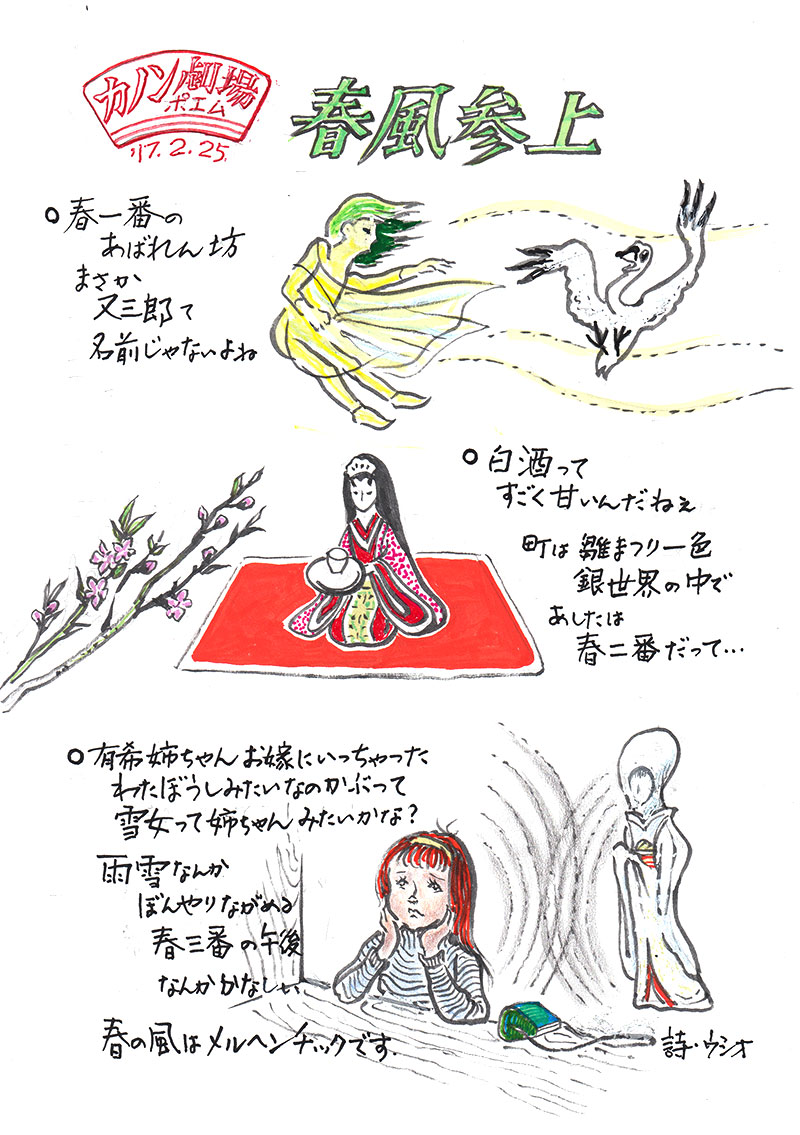 カノン劇場
ポエム
'17.2.25.
春風参上
○春一番の
あばれん坊
まさか
又三郎て
名前じゃないよね
○白酒って
すごく甘いんだねぇ
町は雛まつり一色
銀世界の中で
あしたは
春二番だって…
○有希姉ちゃんお嫁にいっちゃった
わたぼうしみたいなのかぶって
雪女って姉ちゃんみたいかな？
雨雪なんか
ぼんやりながめる
春三番の午後
なんかかなしい
春の風はメルヘンチックです.
詩・ウシオ